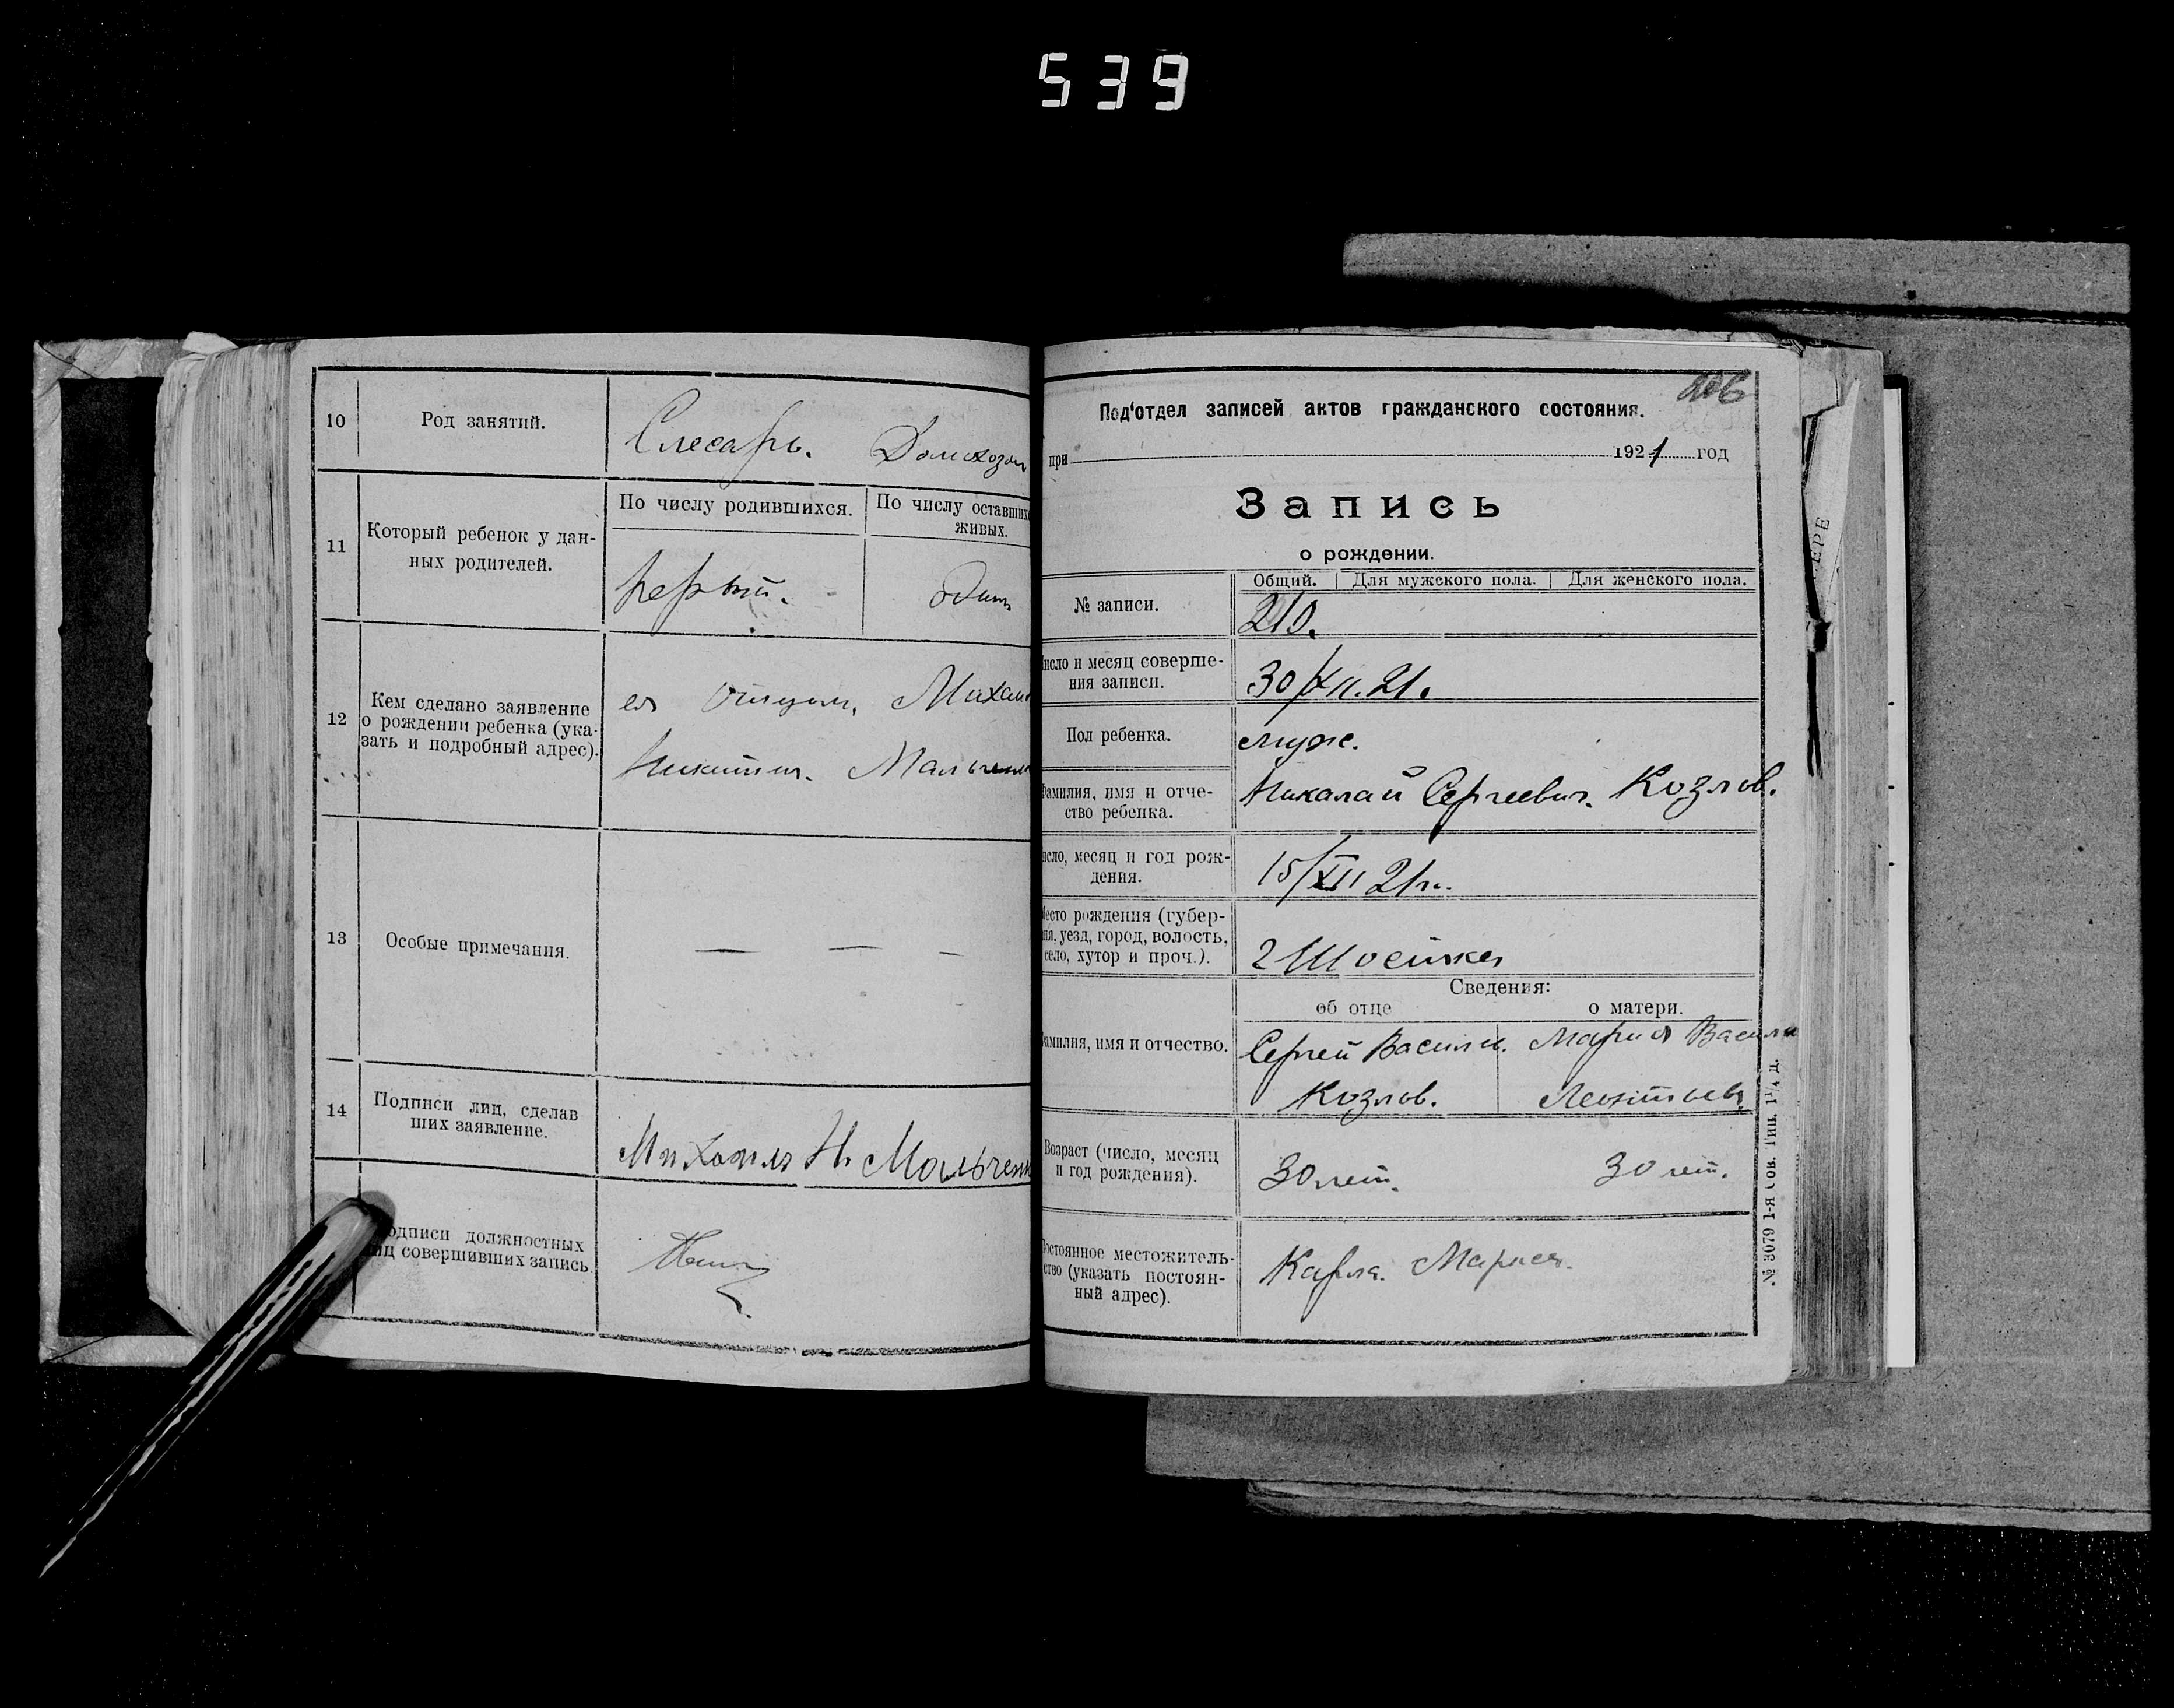 539
10
Род занятий.
Слесарь. Домохозяй
11
Который ребенок у дан-
ных родителей.
По числу родившихся.
По числу оставших
живых.
первый.
один
12
Кем сделано заявление
о рождении ребенка (ука-
зать и подробный адрес).
отцом, Михаил
Никитич. Мальченк
13
Особые примечания.
— — —
14
Подписи лиц, сделав
ших заявление.
Михаилъ Н. Мальченк
одписи должностных
иц совершивших запись.
Под'отдел записей актов гражданского состояния.
при 1921 год
Запись
о рождении.
Общий. Для мужского пола. Для женского пола.
№ записи.
210.
исло и месяц соверше-
ния записи.
30/XII. 21.
Пол ребенка.
муж.
Фамилия, имя и отче-
ство ребенка.
Николай Сергеевич. Козлов.
исло, месяц и год рож-
дения.
15/XII 21 г.
Место рождения (губер-
ия, уезд, город, волость,
село, хутор и проч.).
2
Сведения:
об отце
о матери.
амилия, имя и отчество.
Сергей Васильи.
Козлов.
Мария Васильи
Леонтьев
Возраст (число, месяц
и год рождения).
30 лет.
30 лет.
остоянное местожитель-
ство (указать постоян-
ный адрес).
Карла. Маркса.
№ 3079 1-я Сов. Тип. 1¼ д.
ЕРЕ